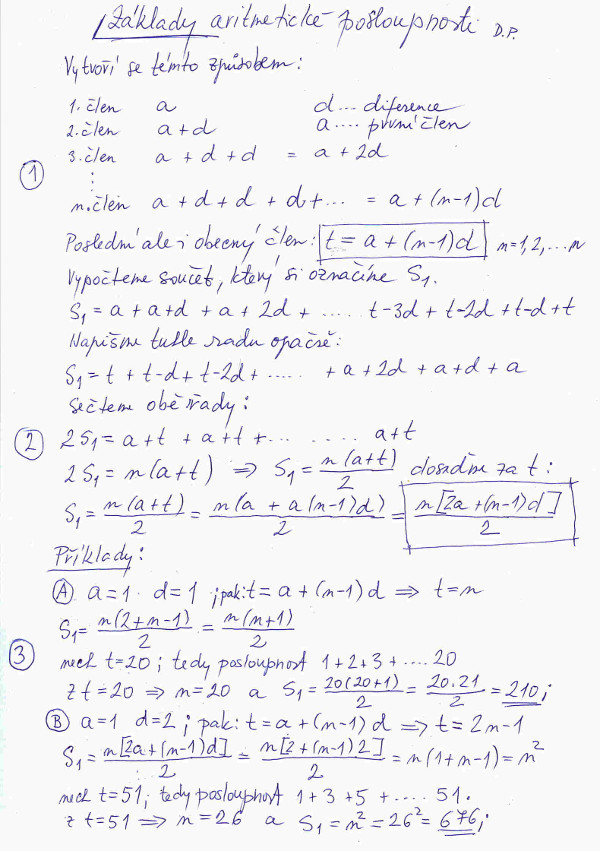 Základy aritmetické pošloupnosti D.P.
Vytvoří se témto způsobem:
1. člen a d... diference
2. člen a+d a.... první člen
3. člen a + d + d = a + 2d
①
⋮
n. člen a + d + d + d + ... = a + (n-1)d
Poslední ale i obecný člen: t = a + (n-1)d n=1,2,...N
Vypočteme součet, který si označíme S₁.
S₁ = a + a+d + a + 2d + ..... t-3d + t-2d + t-d + t
Napišme tutle řadu opačně:
S₁ = t + t-d + t-2d + ..... + a + 2d + a+d + a
Sečteme obě řady:
② 2S₁ = a+t + a+t + ... ..... a+t
2S₁ = n(a+t) ⇒ S₁ = n(a+t)/2 dosadíme za t:
S₁ = n(a+t)/2 = n(a + a(n-1)d)/2 = n[2a+(n-1)d]/2
Příklady:
Ⓐ a=1 d=1 ; pak: t = a + (n-1)d ⇒ t=n
S₁ = n(2+n-1)/2 = n(n+1)/2
③ nech t=20; tedy posloupnost 1+2+3+....20
z t=20 ⇒ n=20 a S₁ = 20(20+1)/2 = 20.21/2 = 210;
Ⓑ a=1 d=2; pak: t=a+(n-1)d ⇒ t=2n-1
S₁ = n[2a+(n-1)d]/2 = n[2+(n-1)2]/2 = n(1+n-1) = n²
nech t=51; tedy posloupnost 1+3+5+....51.
z t=51 ⇒ n=26 a S₁=n²=26²=676;